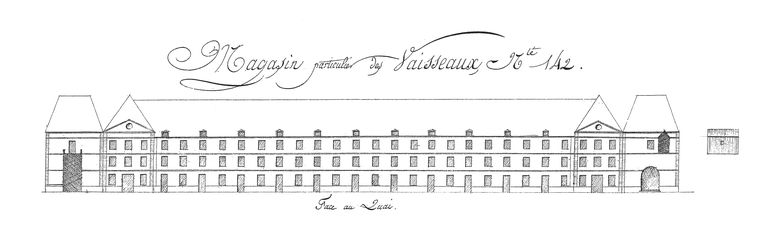 Magasin particulier des Vaisseaux, Nte 142.
Face au Quai.